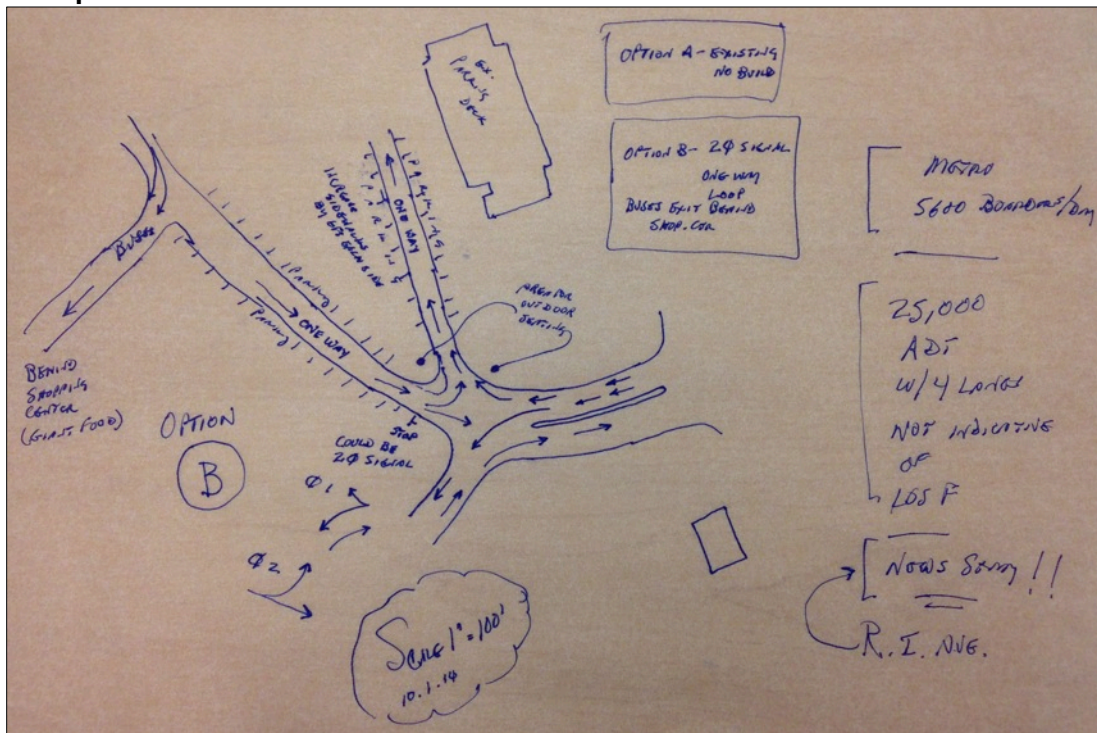 EX.
PARKING
DECK
OPTION A - EXISTING
NO BUILD
OPTION B - 2Ø SIGNAL
ONE WAY
LOOP
BUSES EXIT BEHIND
SHOP. CTR
METRO
5600 BOARDERS/DAY
25,000
ADT
W/ 4 LANES
NOT INDICATIVE
OF
LOS F
NEWS STORY!!
R. I. AVE.
INCREASE
SIDEWALKS
BY 6FT EACH SIDE
PARKING
ONE WAY
PARKING
AREA FOR
OUTDOOR
SEATING
BUSES
PARKING
ONE WAY
PARKING
BEHIND
SHOPPING
CENTER
(GIANT FOOD)
OPTION
B
STOP
COULD BE
2Ø SIGNAL
Ø1
Ø2
SCALE 1" = 100'
10.1.14